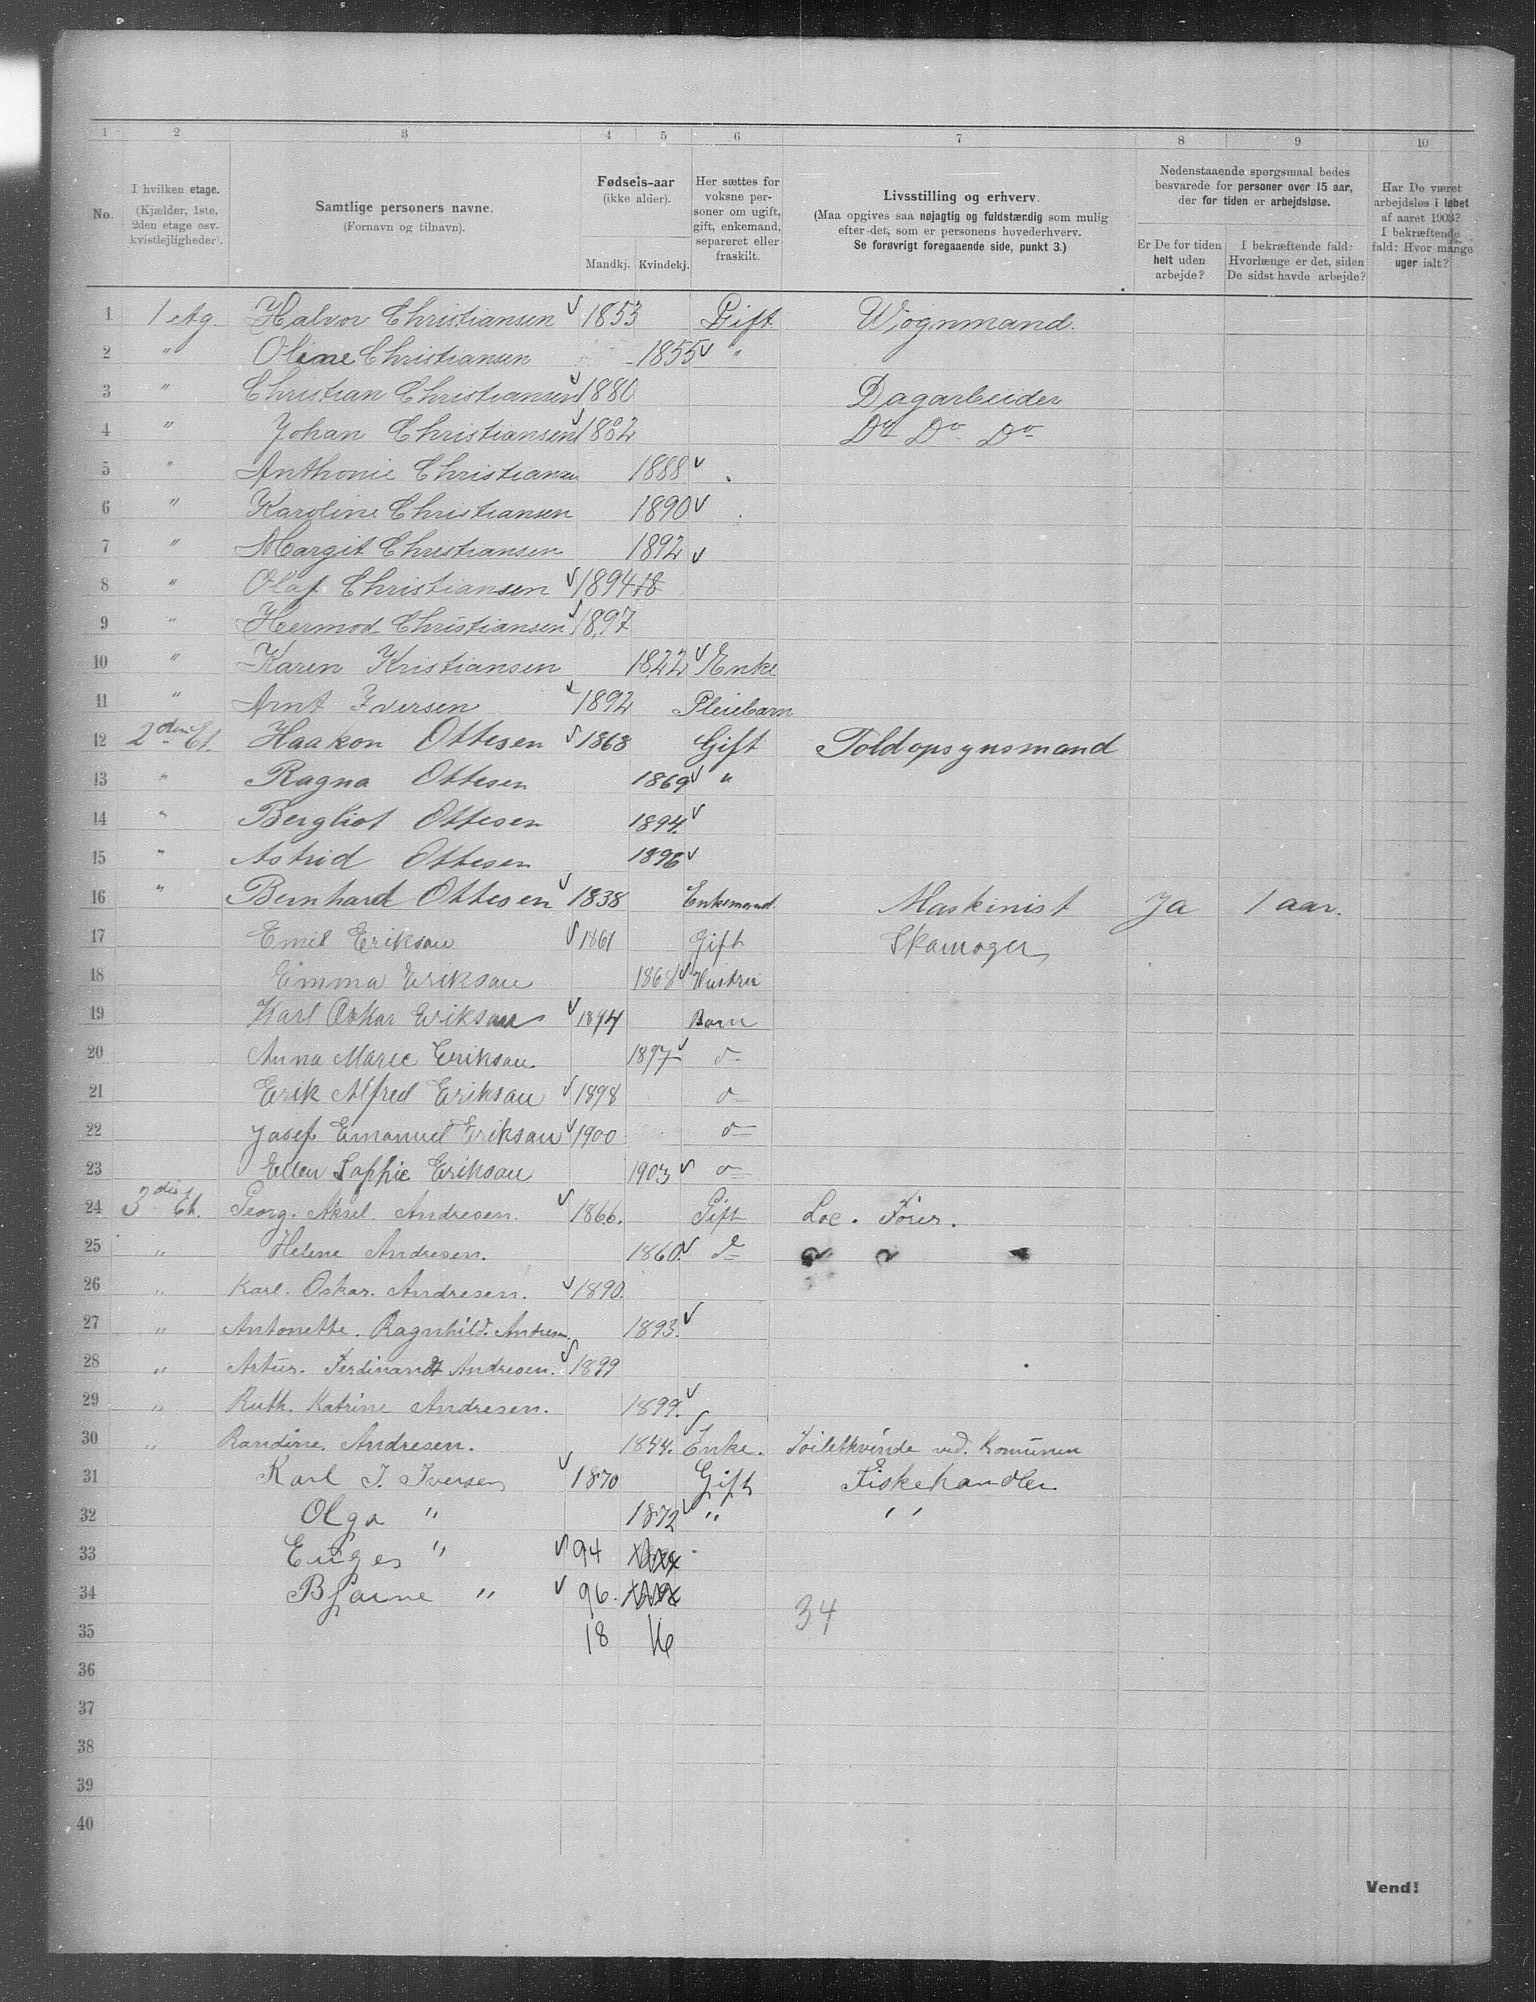 1 2 3 4 5 6 7 8 9 10
No. I hvilken etage. (Kjælder, 1ste, 2den etage osv. kvistlejligheder).
Samtlige personers navne. (Fornavn og tilnavn).
Fødsels-aar (ikke alder). Mandkj. Kvindekj.
Her sættes for voksne personer om ugift, gift, enkemand, separeret eller fraskilt.
Livsstilling og erhverv. (Maa opgives saa nøjagtig og fuldstændig som mulig efter det, som er personens hovederhverv. Se forøvrigt foregaaende side, punkt 3.)
Nedenstaaende spørgsmaal bedes besvarede for personer over 15 aar, der for tiden er arbejdsløse.
Er De for tiden helt uden arbejde?
I bekræftende fald: Hvorlænge er det, siden De sidst havde arbejde?
Har De været arbejdsløs i løbet af aaret 1903? I bekræftende fald: Hvor mange uger ialt?
1 1 Etg. Halvor Christiansen 1853 Gift Wognmand.
2 " Oline Christiansen 1855 "
3 " Christian Christiansen 1880 Dagarbeider
4 " Johan Christiansen 1882 Do Do Do
5 " Anthonie Christiansen 1888
6 " Karoline Christiansen 1890
7 " Margit Christiansen 1892
8 " Olaf Christiansen 1894 18
9 " Hermod Christiansen 1897
10 " Karen Kristiansen 1822 Enke
11 " Arnt Iversen 1892 Pleiebarn
12 2den Et. Haakon Ottesen 1868 Gift Toldopsynsmand
13 " Ragna Ottesen 1869 "
14 " Bergliot Ottesen 1894.
15 " Astrid Ottesen 1896
16 " Bernhard Ottesen 1838 Enkemand. Maskinist Ja 1 aar.
17 Emil Eriksau 1861 Gift Skomager
18 Emma Eriksau 1868 Hustru
19 Karl Oskar Eriksau 1894 Barn
20 Anna Marie Eriksau 1897 d
21 Erik Alfred Eriksau 1898 d
22 Josef Emanuel Eriksau 1900 d
23 Ellen Sophie Eriksau 1903 d
24 3die Et. Georg. Aksel Andresen. 1866. Gift Loc. Fører.
25 " Helene Andresen. 1860. d
26 " Karl. Oskar. Andresen. 1890.
27 " Antonette. Ragnhild. Andresen. 1893.
28 " Artur. Ferdinandt Andresen. 1899
29 " Ruth. Katrine Andresen. 1899.
30 " Randine. Andresen. 1844. Enke. Toiletkvinde ved. Komunen
31 Karl J. Iversen 1870 Gift Fiskehandler
32 Olga " 1872 " "
33 " 94
34 Bjarne " 96.
35 18 16 34
36
37
38
39
40
Vend!